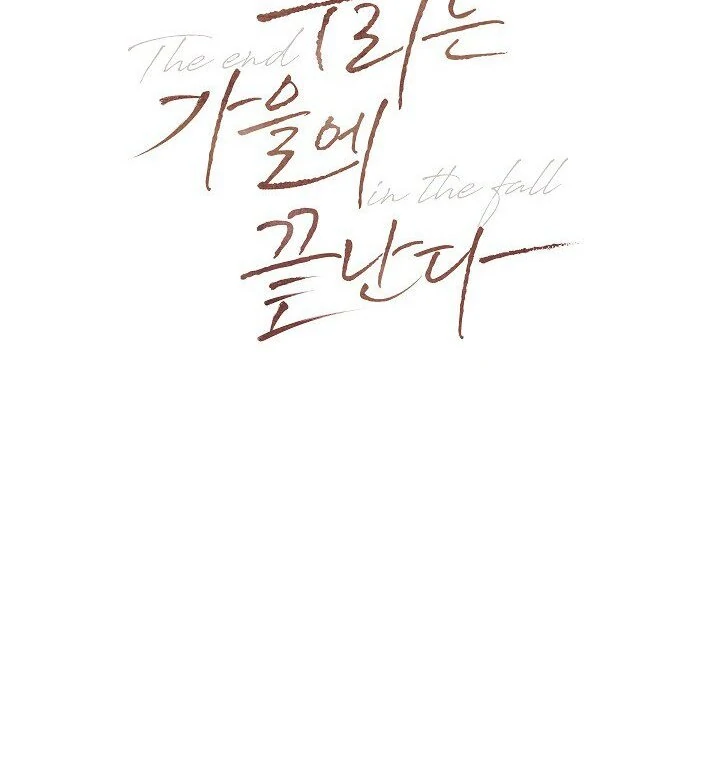 우리는
The end
가을에
in the fall
끝난다